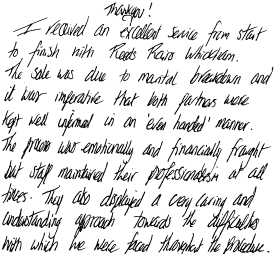 Thankyou!
I received an excellent service from start
to finish with Reeds Rains Whickham.
The sale was due to marital breakdown and
it was imperative that both partners were
kept well informed in an 'even handed' manner.
The process was emotionally and financially fraught
but staff maintained their professionalism at all
times. They also displayed a very caring and
understanding approach towards the difficulties
with which we were faced throughout the procedure.